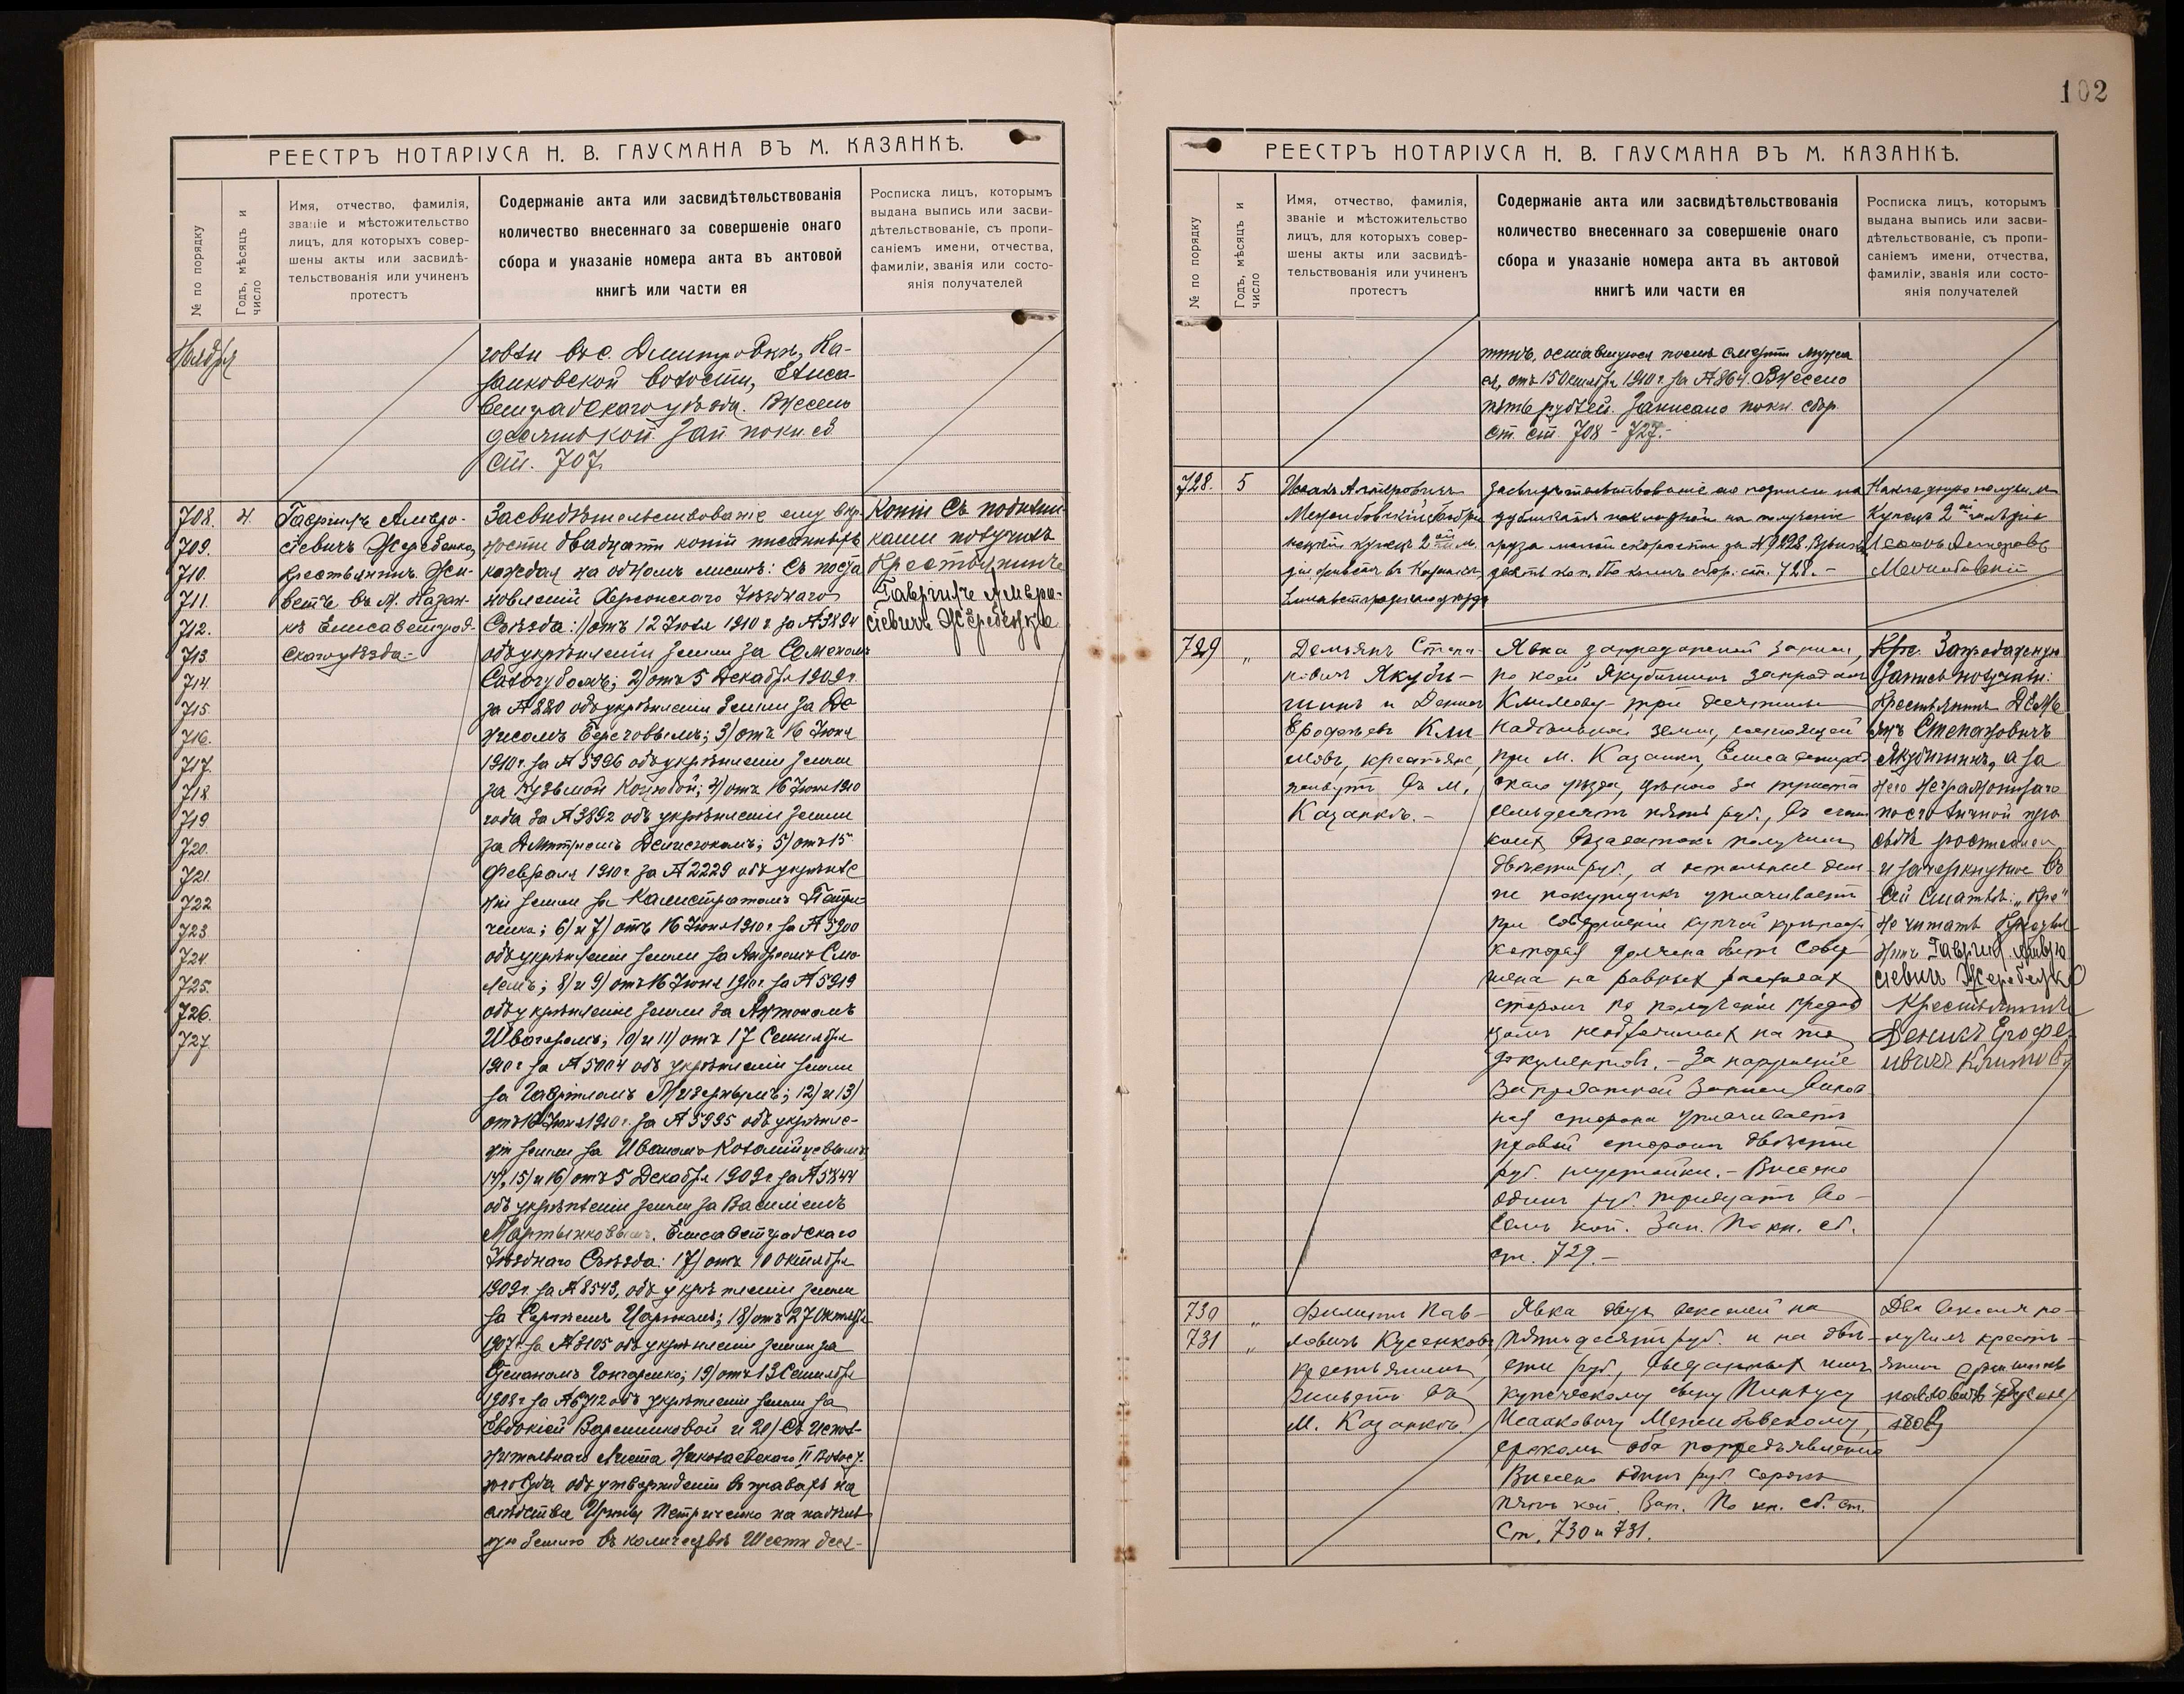 РЕЕСТРЪ НОТАРІУСА Н. В. ГАУСМАНА ВЪ М. КАЗАНКѢ.
№ по порядку
Годъ, мѣсяцъ и
число
Имя, отчество, фамилія,
званіе и мѣстожительство
лицъ, для которыхъ совер-
шены акты или засвидѣ-
тельствованія или учиненъ
протестъ
Содержаніе акта или засвидѣтельствованія
количество внесеннаго за совершеніе онаго
сбора и указаніе номера акта въ актовой
книгѣ или части ея
Росписка лицъ, которымъ
выдана выпись или засви-
дѣтельствованіе, съ пропи-
саніемъ имени, отчества,
фамиліи, званія или состо-
янія получателей
Ноября
Дмитровки, Ка-
занковской волости, Елиса-
ветградскаго уѣзда. Внесено
десять коп. Зап. по кн. сб.
ст. 707.
708. 4.
709.
710.
711.
712.
713.
714.
715.
716.
717.
718
719
720.
721.
722
723
724
725.
726.
727
Гавріилъ Амвро-
сіевичъ Жеребенко,
крестьянинъ. Жи-
ветъ въ м. Казан-
кѣ Елисаветград-
скаго уѣзда.-
Засвидѣтельствованіе ему вѣр-
ности двадцати копій писанныхъ
каждая на одномъ листѣ: съ поста
новленій Херсонскаго Уѣзднаго
Съѣзда: 1) отъ 12 Іюля 1910 г. за № 3894
объ укрѣпленіи земли за Семеномъ
Сологубомъ; 2) отъ 5 Декабря 1909 г.
за № 220 объ укрѣпленіи земли за Де
нисомъ Береговымъ; 3) отъ 16 Іюня
1910 г. за № 5996 объ укрѣпленіи земли
за Кузьмой Коцюбой; 4) отъ 16 Іюня 1910
года за № 3892 объ укрѣпленіи земли
за Дмитріемъ Денисюкомъ; 5) отъ 15
Февраля 1910 г. за № 2229 объ укрѣпле
ніи земли за Калистратомъ Петри-
ченко; 6) и 7) отъ 16 Іюня 1910 г. за № 5900
объ укрѣпленіи земли за Андреемъ Смо
лемъ; 8) и 9) отъ 16 Іюня 1910 г. за № 5919
объ укрѣпленіи земли за Антономъ
Швагеромъ; 10) и 11) отъ 17 Сентября
1910 г. за № 5004 объ укрѣпленіи земли
за Гавріиломъ 12) и 13)
отъ 16 Іюня 1910 г. за № 5995 объ укрѣпле-
ніи земли за Иваномъ Коломійцевымъ
14), 15) и 16) отъ 5 Декабря 1909 г. за № 5844
объ укрѣпленіи земли за Василіемъ
Мартынковымъ. Елисаветградскаго
Уѣзднаго Съѣзда: 17) отъ 10 Октября
1909 г. за № 8543, объ укрѣпленіи земли
за Сергѣемъ 18) отъ 27 Октября
1907 г. за № 3105 объ укрѣпленіи земли за
Степаномъ Гончаренко; 19) отъ 13 Сентября
1908 г. за № 6712 объ укрѣпленіи земли за
Евдокіей Варенниковой и 20) съ испол-
нительнаго листа Николаевскаго II Волост-
ного Суда объ утвержденіи въ правахъ на
слѣдства Ирины Петриченко на надѣль
ную землю въ количествѣ шести деся-
Копіи съ подлинн.
ками получилъ
Крестьянинъ
Гавріилъ Амвро-
сіевичъ Жеребенко
102
РЕЕСТРЪ НОТАРІУСА Н. В. ГАУСМАНА ВЪ М. КАЗАНКѢ.
№ по порядку
Годъ, мѣсяцъ и
число
Имя, отчество, фамилія,
званіе и мѣстожительство
лицъ, для которыхъ совер-
шены акты или засвидѣ-
тельствованія или учиненъ
протестъ
Содержаніе акта или засвидѣтельствованія
количество внесеннаго за совершеніе онаго
сбора и указаніе номера акта въ актовой
книгѣ или части ея
Росписка лицъ, которымъ
выдана выпись или засви-
дѣтельствованіе, съ пропи-
саніемъ имени, отчества,
фамиліи, званія или состо-
янія получателей
тинъ, оставшуюся послѣ смерти мужа
ея, отъ 15 Октября 1910 г. за № 864. Внесено
пять рублей. Записано по кн. сбор.
ст. ст. 708 - 727.-
728. 5
Межибовскій
купецъ 2 ой гил.
живетъ въ Казанкѣ,
Елисаветградскаго уѣзда
Засвидѣтельствованіе его подписи на
дубликатѣ накладной на полученіе
груза малой скорости за № 9228. Взыск.
десять коп. По книгѣ сбор. ст. 728.-
Накладную получилъ
Купецъ 2 ой гильдіи
Межибовскій
729 "
Демьянъ Степа-
новичъ Якуби-
шинъ и Денисъ
Ерофѣевъ Кли-
мовъ, крестьяне,
живутъ въ м.
Казанкѣ.-
Явка запродажной записи,
по коей Якубишинъ запродалъ
Климову три десятины
надѣльной земли, состоящей
при м. Казанкѣ, Елисаветград-
скаго уѣзда, цѣною за триста
семьдесятъ пять руб., въ счетъ
коихъ въ задатокъ получилъ
двѣсти руб., а остальные день-
ги покупщикъ уплачиваетъ
при совершеніи купчей крѣпости,
которая должна быть совер-
шена на равныхъ расходахъ
сторонъ по полученіи продав-
цомъ необходимыхъ на то
документовъ.- За нарушеніе
запродажной записи винов-
ная сторона уплачиваетъ
правой сторонѣ двѣсти
руб. неустойки.- Внесено
одинъ руб. тридцать во-
семь коп. Зап. по кн. сб.
ст. 729.-
Кре. Запродажную
Запись получили:
Крестьянинъ Демь
янъ Степановичъ
Якубишинъ, а за
него неграмотнаго
по его личной про
сьбѣ росписался
и зачеркнутое въ
сей статьѣ: "Кре"
не читать Крестья
нинъ Гавріилъ Амвро
сіевичъ Жеребенко
Крестьянинъ
Денисъ Ерофе
ивичъ Климовъ
730 "
731 "
Филиппъ Пав-
ловичъ Кусенковъ,
крестьянинъ,
живетъ въ
м. Казанкѣ.
Явка двухъ векселей на
пятьдесятъ руб. и на двѣ-
сти руб., выданныхъ имъ
купеческому сыну Пинкусу
Исааковичу Межибовскому,
срокомъ оба по предъявленію
Внесено одинъ руб. сорокъ
пять коп. Зап. по кн. сб. ст.
ст. 730 и 731.
Два векселя по-
лучилъ кресть-
янинъ Филиппъ
Павловичъ Кусен
ковъ